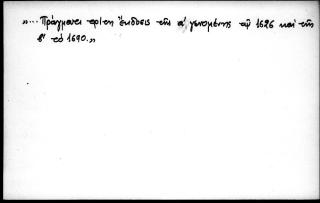 «... Πράγματι τρίτη ἔκδοσις τῆς α' γενομένης τῷ 1626 καὶ τῆς
β' τῷ 1690.»